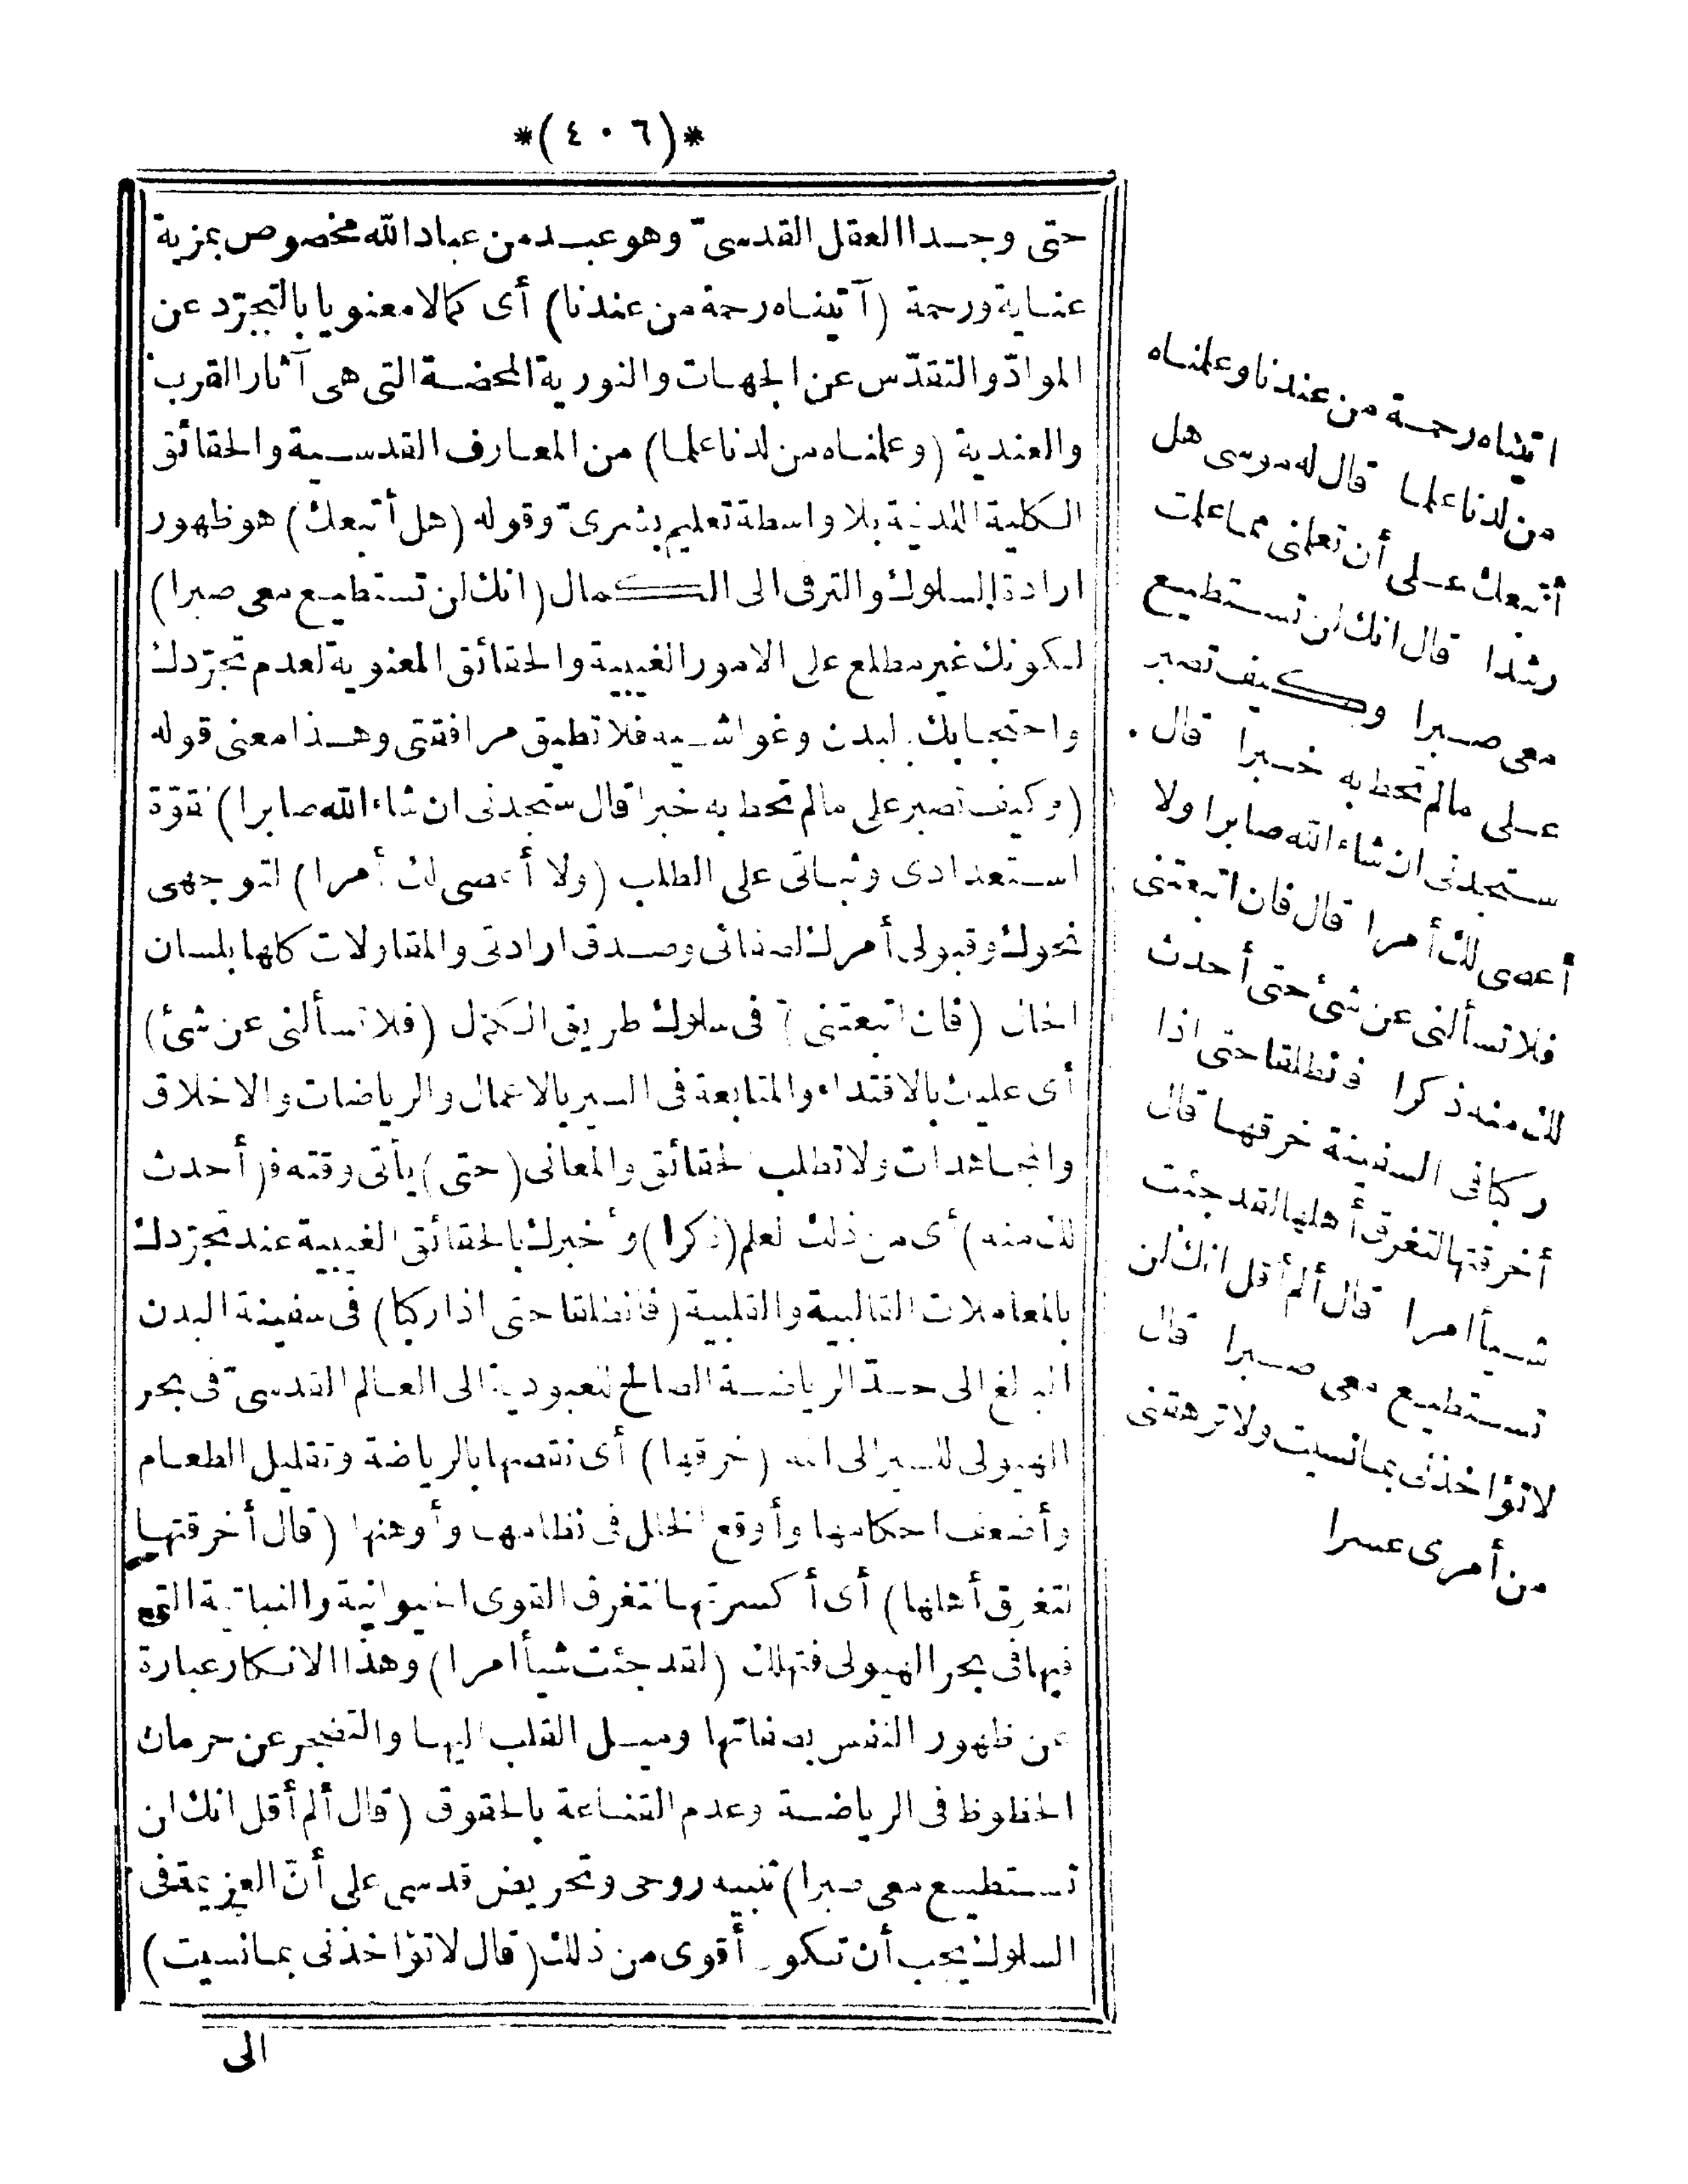 *(٤٠٦)*
حتى وجدا العقل القدسىّ وهو عبد من عباد الله مخصوص بمزية
عناية ورحمة (آتيناه رحمة من عندنا) أى كمالا معنويا بالتجرّد عن
الموادّ والتقدّس عن الجهات والنورية المحضة التى هى آثار القرب
والعندية (وعلمناه من لدنا علما) من المعارف القدسية والحقائق
الكلية اللدنية بلا واسطة تعليم بشرىّ وقوله (هل أتبعك) هو ظهور
ارادة السلوك والترقى الى الكمال (انك لن تستطيع معى صبرا)
لكونك غير مطلع على الامور الغيبية والحقائق المعنوية لعدم تجرّدك
واحتجابك بالبدن وغواشيه فلا تطيق مرافقتى وهذا معنى قوله
(وكيف تصبر على مالم تحط به خبرا قال ستجدنى ان شاء الله صابرا) لقوّة
استعدادى وثباتى على الطلب (ولا أعصى لك أمرا) لتوجهى
نحوك وقبولى أمرك لصفائى وصدق ارادتى والمقاولات كلها بلسان
الحال (فان اتبعتنى) فى سلوك طريق الكمال (فلا تسألنى عن شئ)
أى عليك بالاقتداء والمتابعة فى السير بالاعمال والرياضات والاخلاق
والمجاهدات ولا تطلب الحقائق والمعانى (حتى) يأتى وقته فـ(أحدث
لك منه) أى من ذلك العلم (ذكرا) وأخبرك بالحقائق الغيبية عند تجرّدك
بالمعاملات القالبية والقلبية (فانطلقا حتى اذا ركبا) فى سفينة البدن
البالغ الى حدّ الرياضة الصالح للعبودية الى العالم القدسىّ فى بحر
الهيولى للسير الى الله (خرقها) أى نقصها بالرياضة وتقليل الطعام
وأضعف احكامها وأوقع الخلل فى نظامها وأوهنها (قال أخرقتها
لتغرق أهلها) أى أكسرتها لتغرق القوى الحيوانية والنباتية التى
فيها فى بحر الهيولى فتهلك (لقد جئت شيأ امرا) وهذا الانكار عبارة
عن ظهور النفس بصفاتها وميل القلب اليها والتضجر عن حرمان
الحظوظ فى الرياضة وعدم القناعة بالحقوق (قال ألم أقل انك لن
تستطيع معى صبرا) تنبيه روحى وتحريض قدسى على أنّ العزيمة فى
السلوك يجب أن تكون أقوى من ذلك (قال لا تؤاخذنى بما نسيت)
الى
اتيناه رحمة من عندنا وعلمناه
من لدنا علما قال له موسى هل
أتبعك على أن تعلمنى مما علمت
رشدا قال انك لن تستطيع
معى صبرا وكيف تصبر
على مالم تحط به خبرا قال
ستجدنى ان شاء الله صابرا ولا
أعصى لك أمرا قال فان اتبعتنى
فلا تسألنى عن شئ حتى أحدث
لك منه ذكرا فانطلقا حتى اذا
ركبا فى السفينة خرقها قال
أخرقتها لتغرق أهلها لقد جئت
شيأ امرا قال ألم أقل انك لن
تستطيع معى صبرا قال
لا تؤاخذنى بما نسيت ولا ترهقنى
من أمرى عسرا